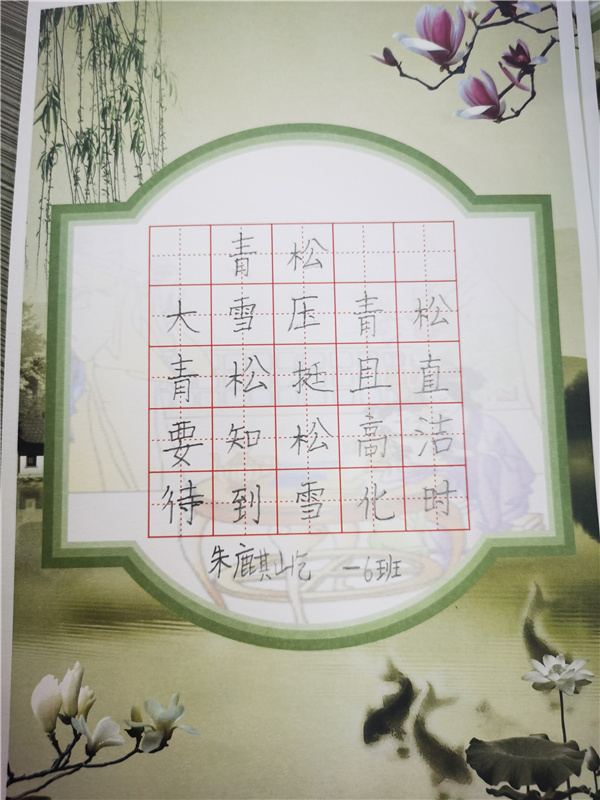 青松
大雪压青松
青松挺且直
要知松高洁
待到雪化时
朱麒屹 一6班